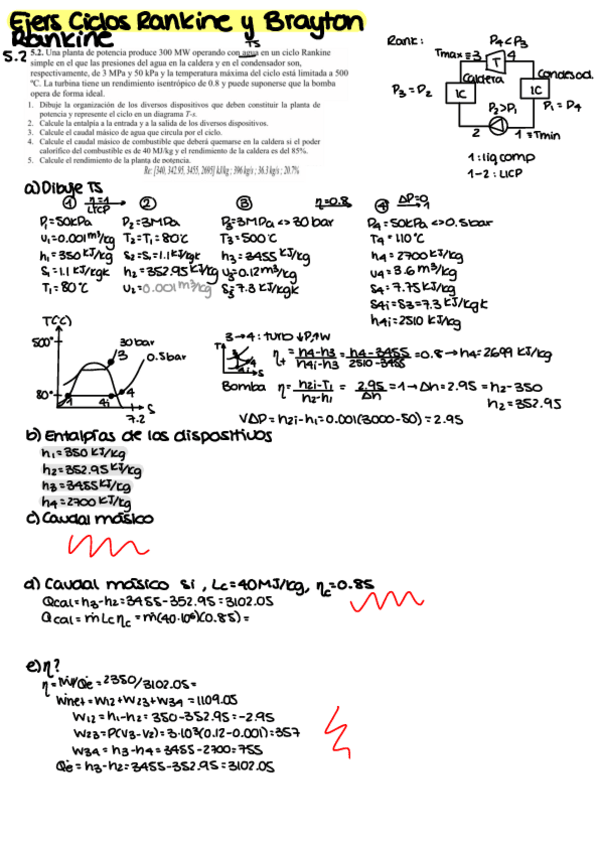 Ejers Ciclos Rankine y Brayton
Rankine
TS
5.2 5.2. Una planta de potencia produce 300 MW operando con agua en un ciclo Rankine
simple en el que las presiones del agua en la caldera y en el condensador son,
respectivamente, de 3 MPa y 50 kPa y la temperatura máxima del ciclo está limitada a 500
ºC. La turbina tiene un rendimiento isentrópico de 0.8 y puede suponerse que la bomba
opera de forma ideal.
1. Dibuje la organización de los diversos dispositivos que deben constituir la planta de
potencia y represente el ciclo en un diagrama T-s.
2. Calcule la entalpía a la entrada y a la salida de los diversos dispositivos.
3. Calcule el caudal másico de agua que circula por el ciclo.
4. Calcule el caudal másico de combustible que deberá quemarse en la caldera si el poder
calorífico del combustible es de 40 MJ/kg y el rendimiento de la caldera es del 85%.
5. Calcule el rendimiento de la planta de potencia.
Re: [340, 342.95, 3455, 2695] kJ/kg ; 396 kg/s ; 36.3 kg/s ; 20.7%
Rank: P4<P3
Tmax=3 T 4
Caldera Condensad.
P3=P2 IC IC P1=P4
P2>P1
2 1=Tmin
1:liq comp
1-2: LICP
a) Dibuje TS
1 η=1 LICP 2 3 η=0.8 4 ΔP=0
P1=50kPa P2=3MPa P3=3MPa<>30bar P4=50kPa<>0.5bar
v1=0.001m³/kg T2=T1=80ºC T3=500ºC T4=110ºC
h1=350kJ/kg S2=S1=1.1kJ/kgk h3=3455kJ/kg h4=2700kJ/kg
S1=1.1kJ/kgk h2=352.95kJ/kg v3=0.12m³/kg v4=3.6m³/kg
T1=80ºC v2=0.001m³/kg S3=7.3kJ/kgk S4=7.75kJ/kg
S4i=S3=7.3kJ/kgk
h4i=2510kJ/kg
T(ºC)
500º 30bar
3 0.5bar
80º 1 4i 4
S
7.2
3→4: turb ↓P,↑W ηt=h4-h3/h4i-h3=h4-3455/2510-3455=0.8→h4=2699kJ/kg
Bomba η=h2i-T1/h2-h1=2.95/Δh=1→Δh=2.95=h2-350
h2=352.95
VΔP=h2i-h1=0.001(3000-50)=2.95
b) Entalpías de los dispositivos
h1=350kJ/kg
h2=352.95kJ/kg
h3=3455kJ/kg
h4=2700kJ/kg
c) Caudal másico
d) Caudal másico si, Lc=40MJ/kg, ηc=0.85
Qcal=h3-h2=3455-352.95=3102.05
Qcal=ṁLcηc=ṁ(40·10⁶)(0.85)=
e) η?
η=Ẇ/Q̇e=2350/3102.05=
Wnet=W12+W23+W34=1109.05
W12=h1-h2=350-352.95=-2.95
W23=P(V3-V2)=3·10³(0.12-0.001)=357
W34=h3-h4=3455-2700=755
Q̇e=h3-h2=3455-352.95=3102.05